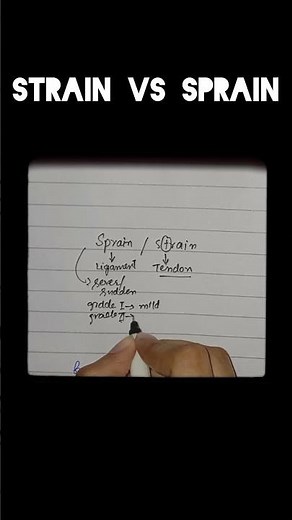 STRAIN VS SPRAIN
Sprain / Strain
↓ ↓
Ligament Tendon
sudden
grade I → mild
grade II →